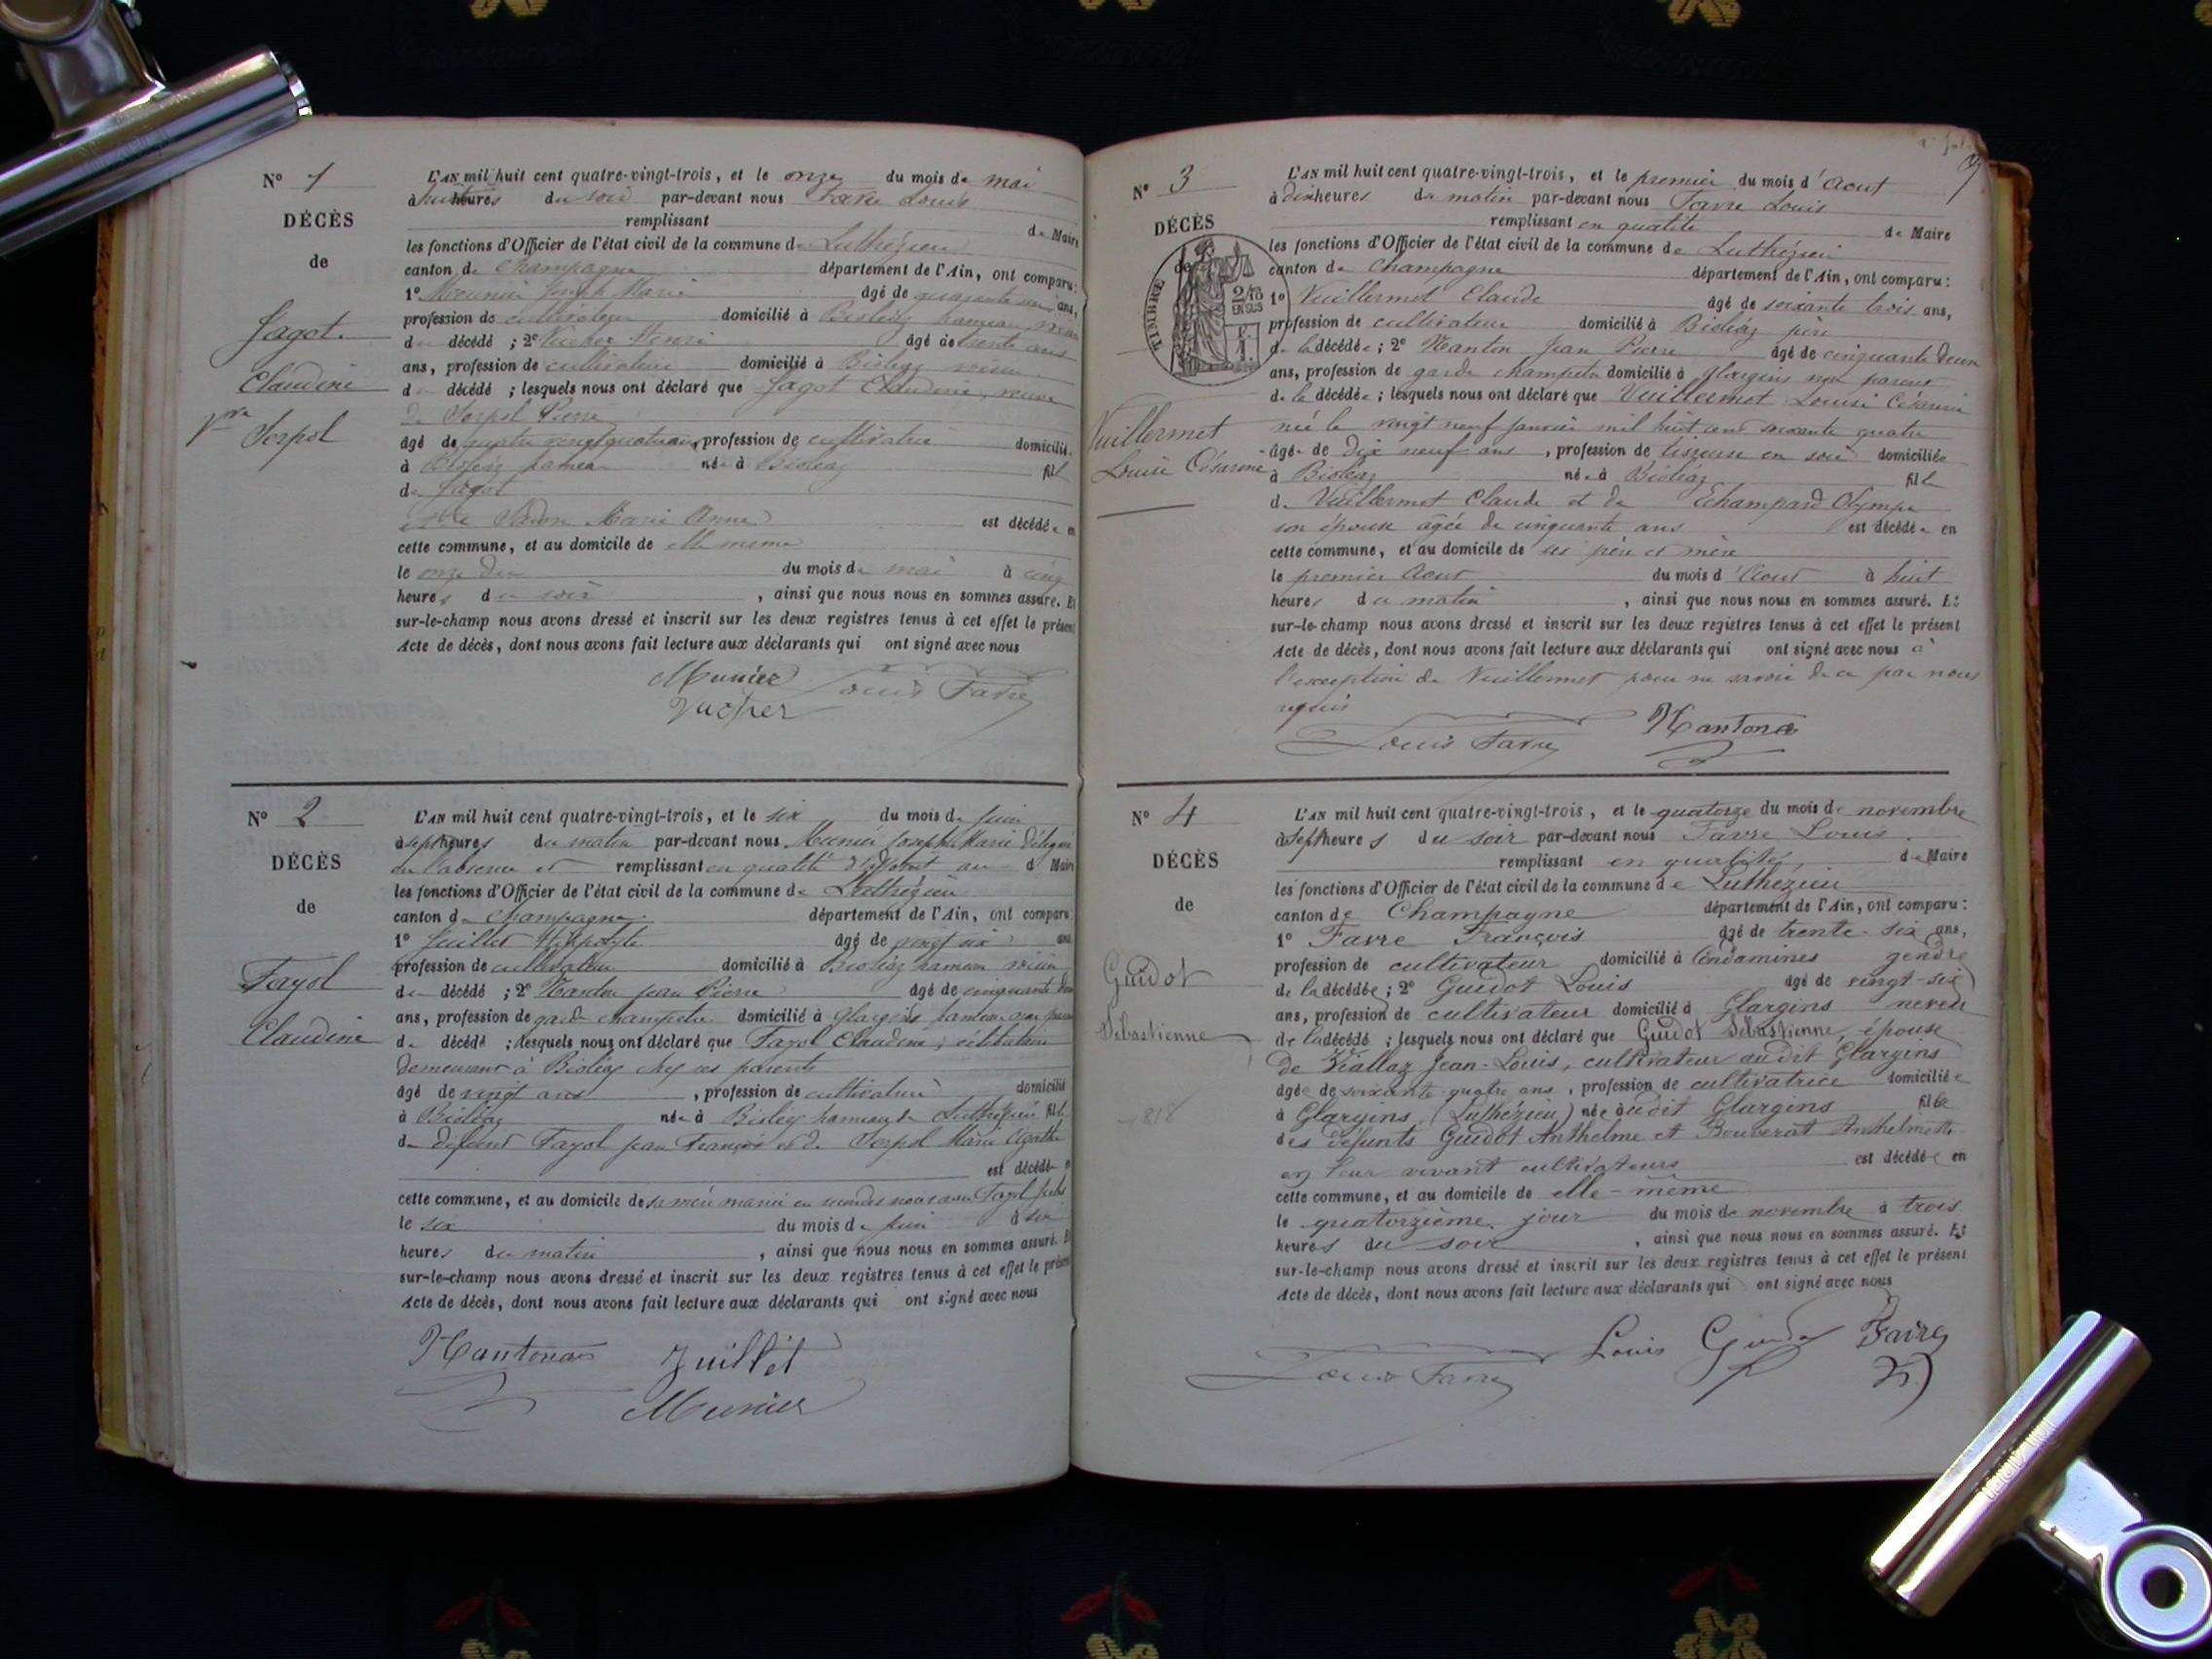 N° 1
DÉCÈS
de
Jagot
Claudine
Vve Serpol
L'AN mil huit cent quatre-vingt-trois, et le onze du mois de mai
à huit heures du soir par-devant nous Favre Louis
remplissant de Maire
les fonctions d'Officier de l'état civil de la commune de Luthézieu
canton de Champagne département de l'Ain, ont comparu:
1° Meunier Joseph Marie âgé de quarante ans,
profession de cultivateur domicilié à Bioléaz hameau
d décédé ; 2° Vucher Henri âgé de trente
ans, profession de cultivateur domicilié à Bioléaz voisin
d décédé ; lesquels nous ont déclaré que Jagot Claudine, veuve
de Serpol Pierre
âgé de quatre vingt ans, profession de domicilié
à Bioléaz hameau née à Bioléaz fil
de Jagot
et de Marie Anne est décédée en
cette commune, et au domicile de elle même
le onze du mois de mai à cinq
heures du soir , ainsi que nous nous en sommes assuré. Et
sur-le-champ nous avons dressé et inscrit sur les deux registres tenus à cet effet le présent
Acte de décès, dont nous avons fait lecture aux déclarants qui ont signé avec nous
Munier Louis Favre
Vucher
N° 2
DÉCÈS
de
Fayol
Claudine
L'AN mil huit cent quatre-vingt-trois, et le six du mois de juin
à sept heures du matin par-devant nous Meunier Joseph Marie délégué
en l'absence et remplissant en qualité d'adjoint au d Maire
les fonctions d'Officier de l'état civil de la commune de Luthézieu
canton de Champagne département de l'Ain, ont comparu
1° Juillet Hippolyte âgé de vingt six ans
profession de cultivateur domicilié à Bioléaz hameau voisin
de décédé ; 2° Nanton Jean Pierre âgé de cinquante deux
ans, profession de garde champêtre domicilié à Glargins hameau non parent
de décédé ; lesquels nous ont déclaré que Fayol Claudine, célibataire
demeurant à Bioléaz chez ses parents
âgé de vingt ans , profession de cultivatrice domicilié
à Bioléaz née à Bioléaz hameau de Luthézieu fille
de défunt Fayol Jean François et de Serpol Marie Agathe
est décédée en
cette commune, et au domicile de sa mère mariée en secondes noces avec Fayol
le six du mois de juin à six
heures du matin , ainsi que nous nous en sommes assuré. Et
sur-le-champ nous avons dressé et inscrit sur les deux registres tenus à cet effet le présent
Acte de décès, dont nous avons fait lecture aux déclarants qui ont signé avec nous
Juillet
Munier
N° 3
DÉCÈS
de
TIMBRE
2/10 EN SUS
Vuillermet
Louise Césarine
L'AN mil huit cent quatre-vingt-trois, et le premier du mois d'Aout
à dix heures du matin par-devant nous Favre Louis
remplissant en qualité de Maire
les fonctions d'Officier de l'état civil de la commune de Luthézieu
canton de Champagne département de l'Ain, ont comparu:
1° Vuillermet Claude âgé de soixante trois ans,
profession de cultivateur domicilié à Bioléaz père
de la décédée ; 2° Nanton Jean Pierre âgé de cinquante deux
ans, profession de garde champêtre domicilié à Glargins non parent
de la décédée ; lesquels nous ont déclaré que Vuillermet Louise Césarine
née le vingt neuf janvier mil huit cent soixante quatre
âgée de dix neuf ans , profession de tisseuse en soie domiciliée
à Bioléaz née à Bioléaz fille
de Vuillermet Claude et de Echampard Olympe
son épouse agée de cinquante ans est décédée en
cette commune, et au domicile de ses père et mère
le premier Aout du mois d'Aout à huit
heures du matin , ainsi que nous nous en sommes assuré. Et
sur-le-champ nous avons dressé et inscrit sur les deux registres tenus à cet effet le présent
Acte de décès, dont nous avons fait lecture aux déclarants qui ont signé avec nous à
l'exception de Vuillermet pour ne savoir de ce par nous
requis
Louis Favre
N° 4
DÉCÈS
de
Guidot
Sébastienne
1818
L'AN mil huit cent quatre-vingt-trois, et le quatorze du mois de novembre
à sept heures du soir par-devant nous Favre Louis
remplissant en qualité de Maire
les fonctions d'Officier de l'état civil de la commune de Luthézieu
canton de Champagne département de l'Ain, ont comparu:
1° Favre François âgé de trente-six ans,
profession de cultivateur domicilié à Condamines gendre
de la décédée ; 2° Guidot Louis âgé de vingt-six
ans, profession de cultivateur domicilié à Glargins neveu
de la décédé ; lesquels nous ont déclaré que Guidot Sébastienne, épouse
de Viallaz Jean-Louis, cultivateur audit Glargins
âgée de soixante-quatre ans , profession de cultivatrice domiciliée
à Glargins (Luthézieu) née audit Glargins fille
des défunts Guidot Anthelme et Bouverat Anthelmette
en leur vivant cultivateurs est décédée en
cette commune, et au domicile de elle-même
le quatorzième jour du mois de novembre à trois
heures du soir , ainsi que nous nous en sommes assuré. Et
sur-le-champ nous avons dressé et inscrit sur les deux registres tenus à cet effet le présent
Acte de décès, dont nous avons fait lecture aux déclarants qui ont signé avec nous
Louis Favre Louis Guidot Favre